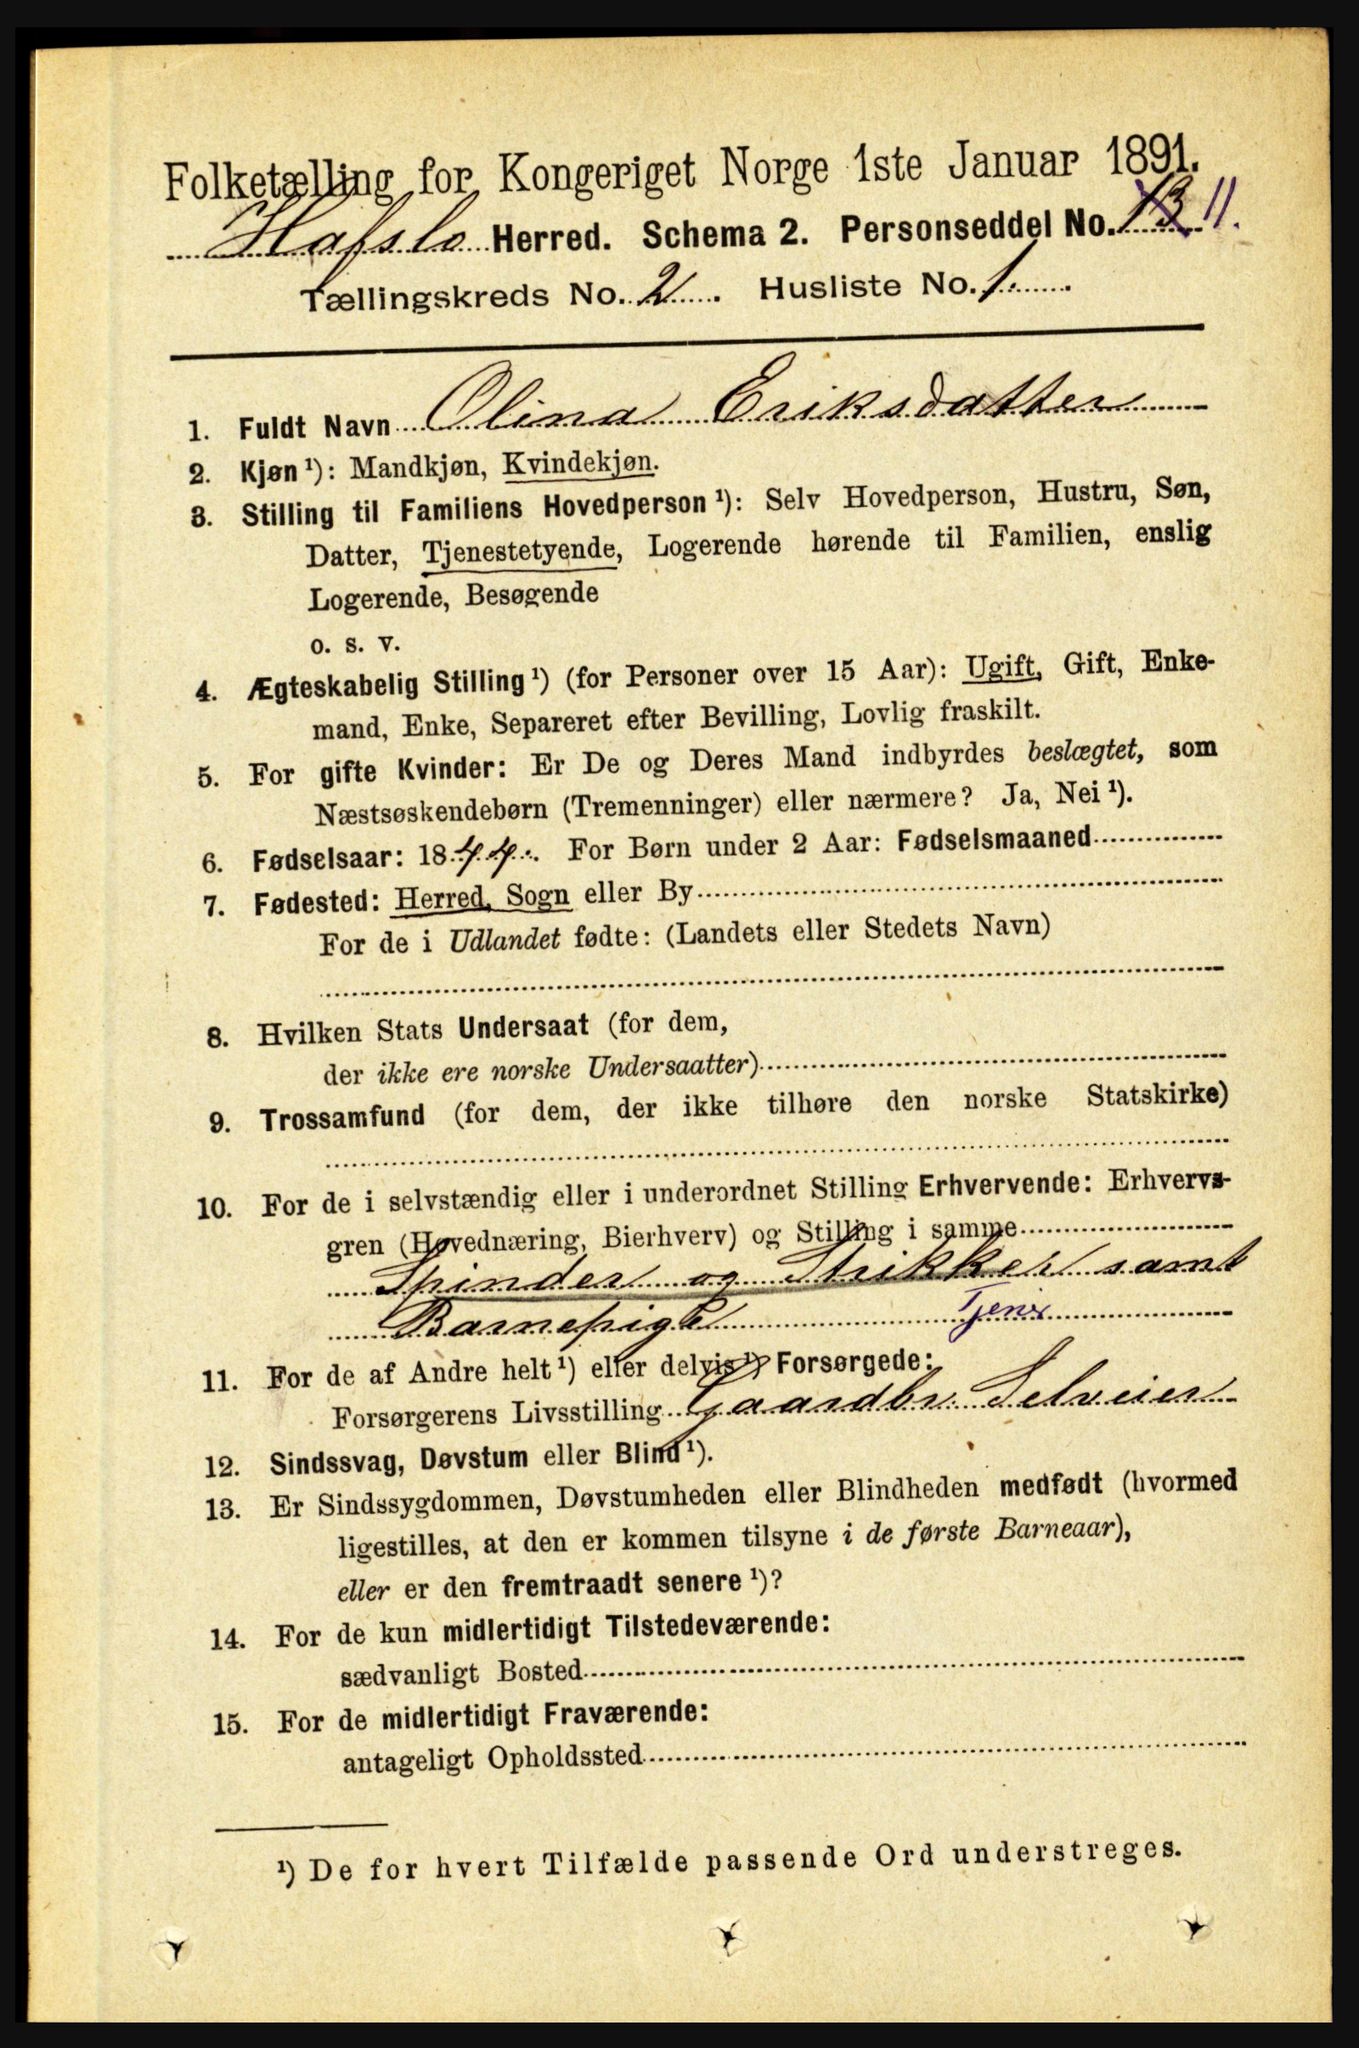 Folketælling for Kongeriget Norge 1ste Januar 1891.
Hafslo Herred. Schema 2. Personseddel No. 13 11.
Tællingskreds No. 2. Husliste No. 1.
1. Fuldt Navn Olina Eriksdatter
2. Kjøn ¹): Mandkjøn, Kvindekjøn.
3. Stilling til Familiens Hovedperson ¹): Selv Hovedperson, Hustru, Søn,
Datter, Tjenestetyende, Logerende hørende til Familien, enslig
Logerende, Besøgende
o. s. v.
4. Ægteskabelig Stilling ¹) (for Personer over 15 Aar): Ugift, Gift, Enke-
mand, Enke, Separeret efter Bevilling, Lovlig fraskilt.
5. For gifte Kvinder: Er De og Deres Mand indbyrdes beslægtet, som
Næstsøskendebørn (Tremenninger) eller nærmere? Ja, Nei ¹).
6. Fødselsaar: 1844. For Børn under 2 Aar: Fødselsmaaned
7. Fødested: Herred, Sogn eller By
For de i Udlandet fødte: (Landets eller Stedets Navn)
8. Hvilken Stats Undersaat (for dem,
der ikke ere norske Undersaatter)
9. Trossamfund (for dem, der ikke tilhøre den norske Statskirke)
10. For de i selvstændig eller i underordnet Stilling Erhvervende: Erhvervs-
gren (Hovednæring, Bierhverv) og Stilling i samme
Spinder og Strikker samt
Barnepige Tjener
11. For de af Andre helt ¹) eller delvis ¹) Forsørgede:
Forsørgerens Livsstilling Gaardbr. Selveier
12. Sindssvag, Døvstum eller Blind ¹).
13. Er Sindssygdommen, Døvstumheden eller Blindheden medfødt (hvormed
ligestilles, at den er kommen tilsyne i de første Barneaar),
eller er den fremtraadt senere ¹)?
14. For de kun midlertidigt Tilstedeværende:
sædvanligt Bosted
15. For de midlertidigt Fraværende:
antageligt Opholdssted
¹) De for hvert Tilfælde passende Ord understreges.